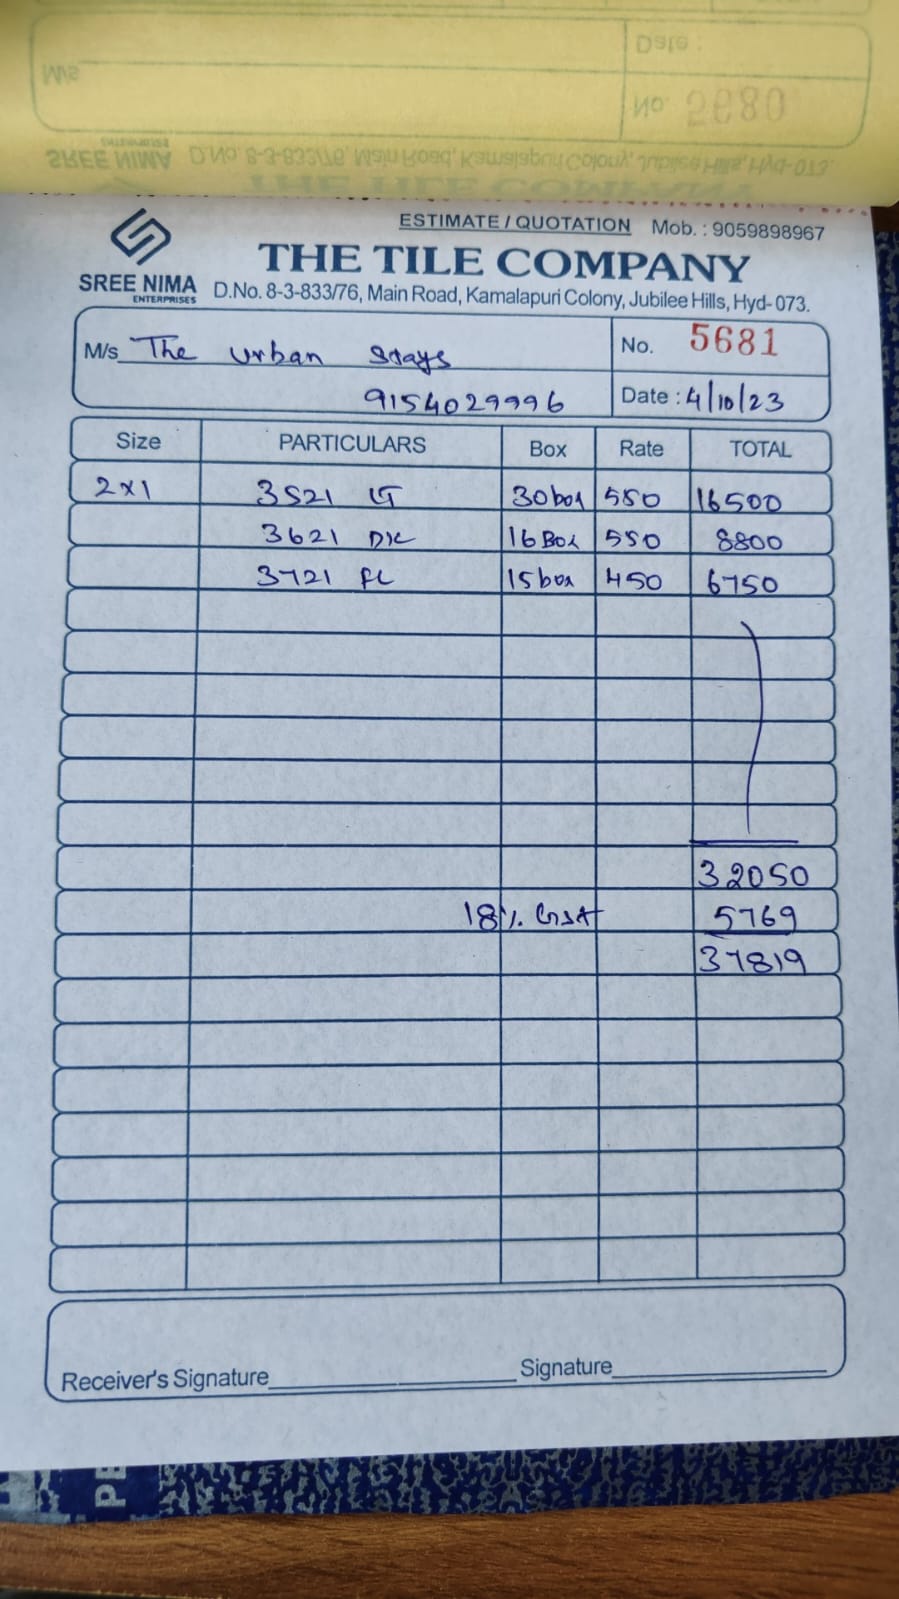 Date :
M/s
No. 5680
SREE NIMA D.No. 8-3-833/76, Main Road, Kamalapuri Colony, Jubilee Hills, Hyd-073.
ENTERPRISES
THE TILE COMPANY
ESTIMATE / QUOTATION Mob. : 9059898967
THE TILE COMPANY
SREE NIMA
ENTERPRISES
D.No. 8-3-833/76, Main Road, Kamalapuri Colony, Jubilee Hills, Hyd- 073.
M/s The Urban Stays No. 5681
9154029996 Date : 4/10/23
Size PARTICULARS Box Rate TOTAL
2x1 3521 LT 30 box 550 16500
3621 DK 16 Box 550 8800
3721 FL 15 box 450 6750
32050
18% GST 5769
37819
Receiver's Signature Signature
PE